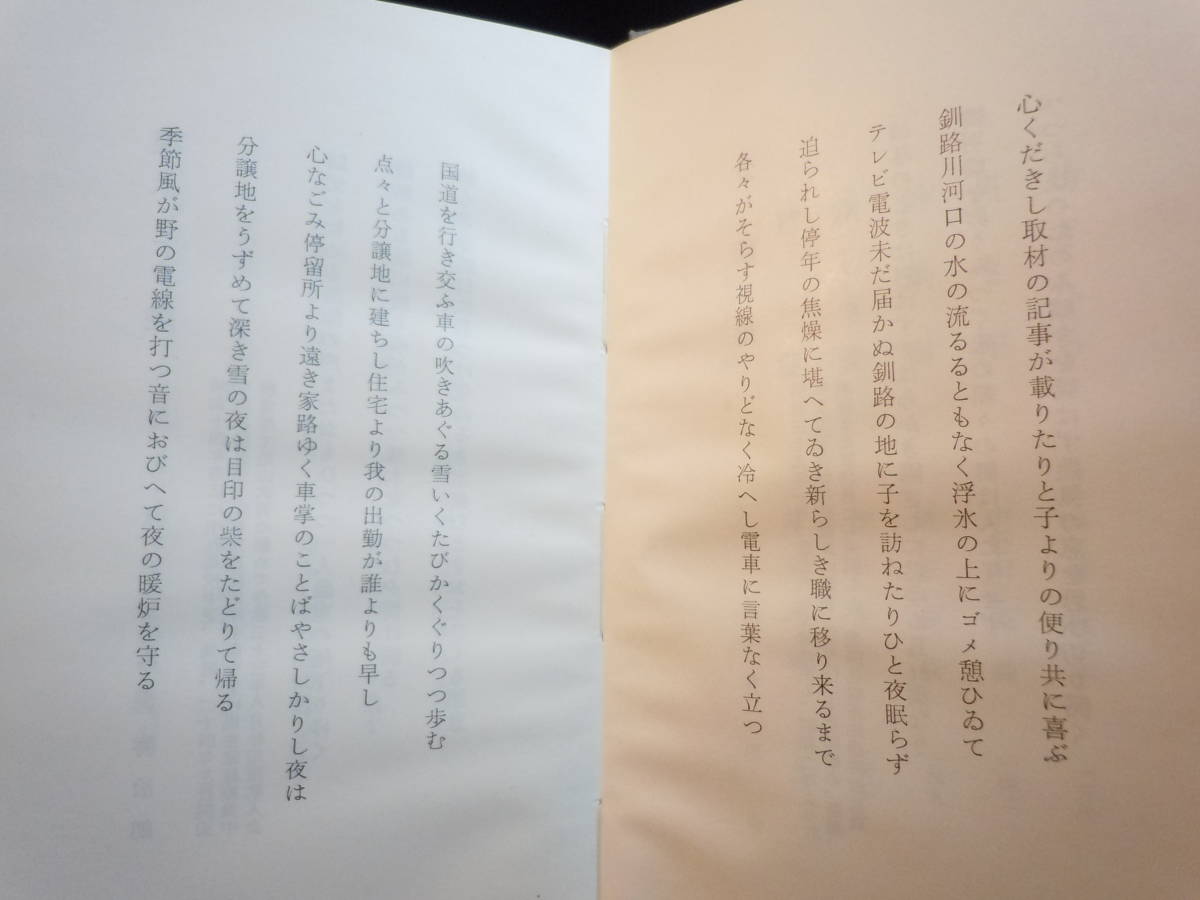 心くだきし取材の記事が載りたりと子よりの便り共に喜ぶ
釧路川河口の水の流るるともなく浮氷の上にゴメ憩ひゐて
テレビ電波未だ届かぬ釧路の地に子を訪ねたりひと夜眠らず
迫られし停年の焦燥に堪へてゐき新らしき職に移り来るまで
各々がそらす視線のやりどなく冷へし電車に言葉なく立つ
国道を行き交ふ車の吹きあぐる雪いくたびかくぐりつつ歩む
点々と分譲地に建ちし住宅より我の出勤が誰よりも早し
心なごみ停留所より遠き家路ゆく車掌のことばやさしかりし夜は
分譲地をうずめて深き雪の夜は目印の柴をたどりて帰る
季節風が野の電線を打つ音におびへて夜の暖炉を守る